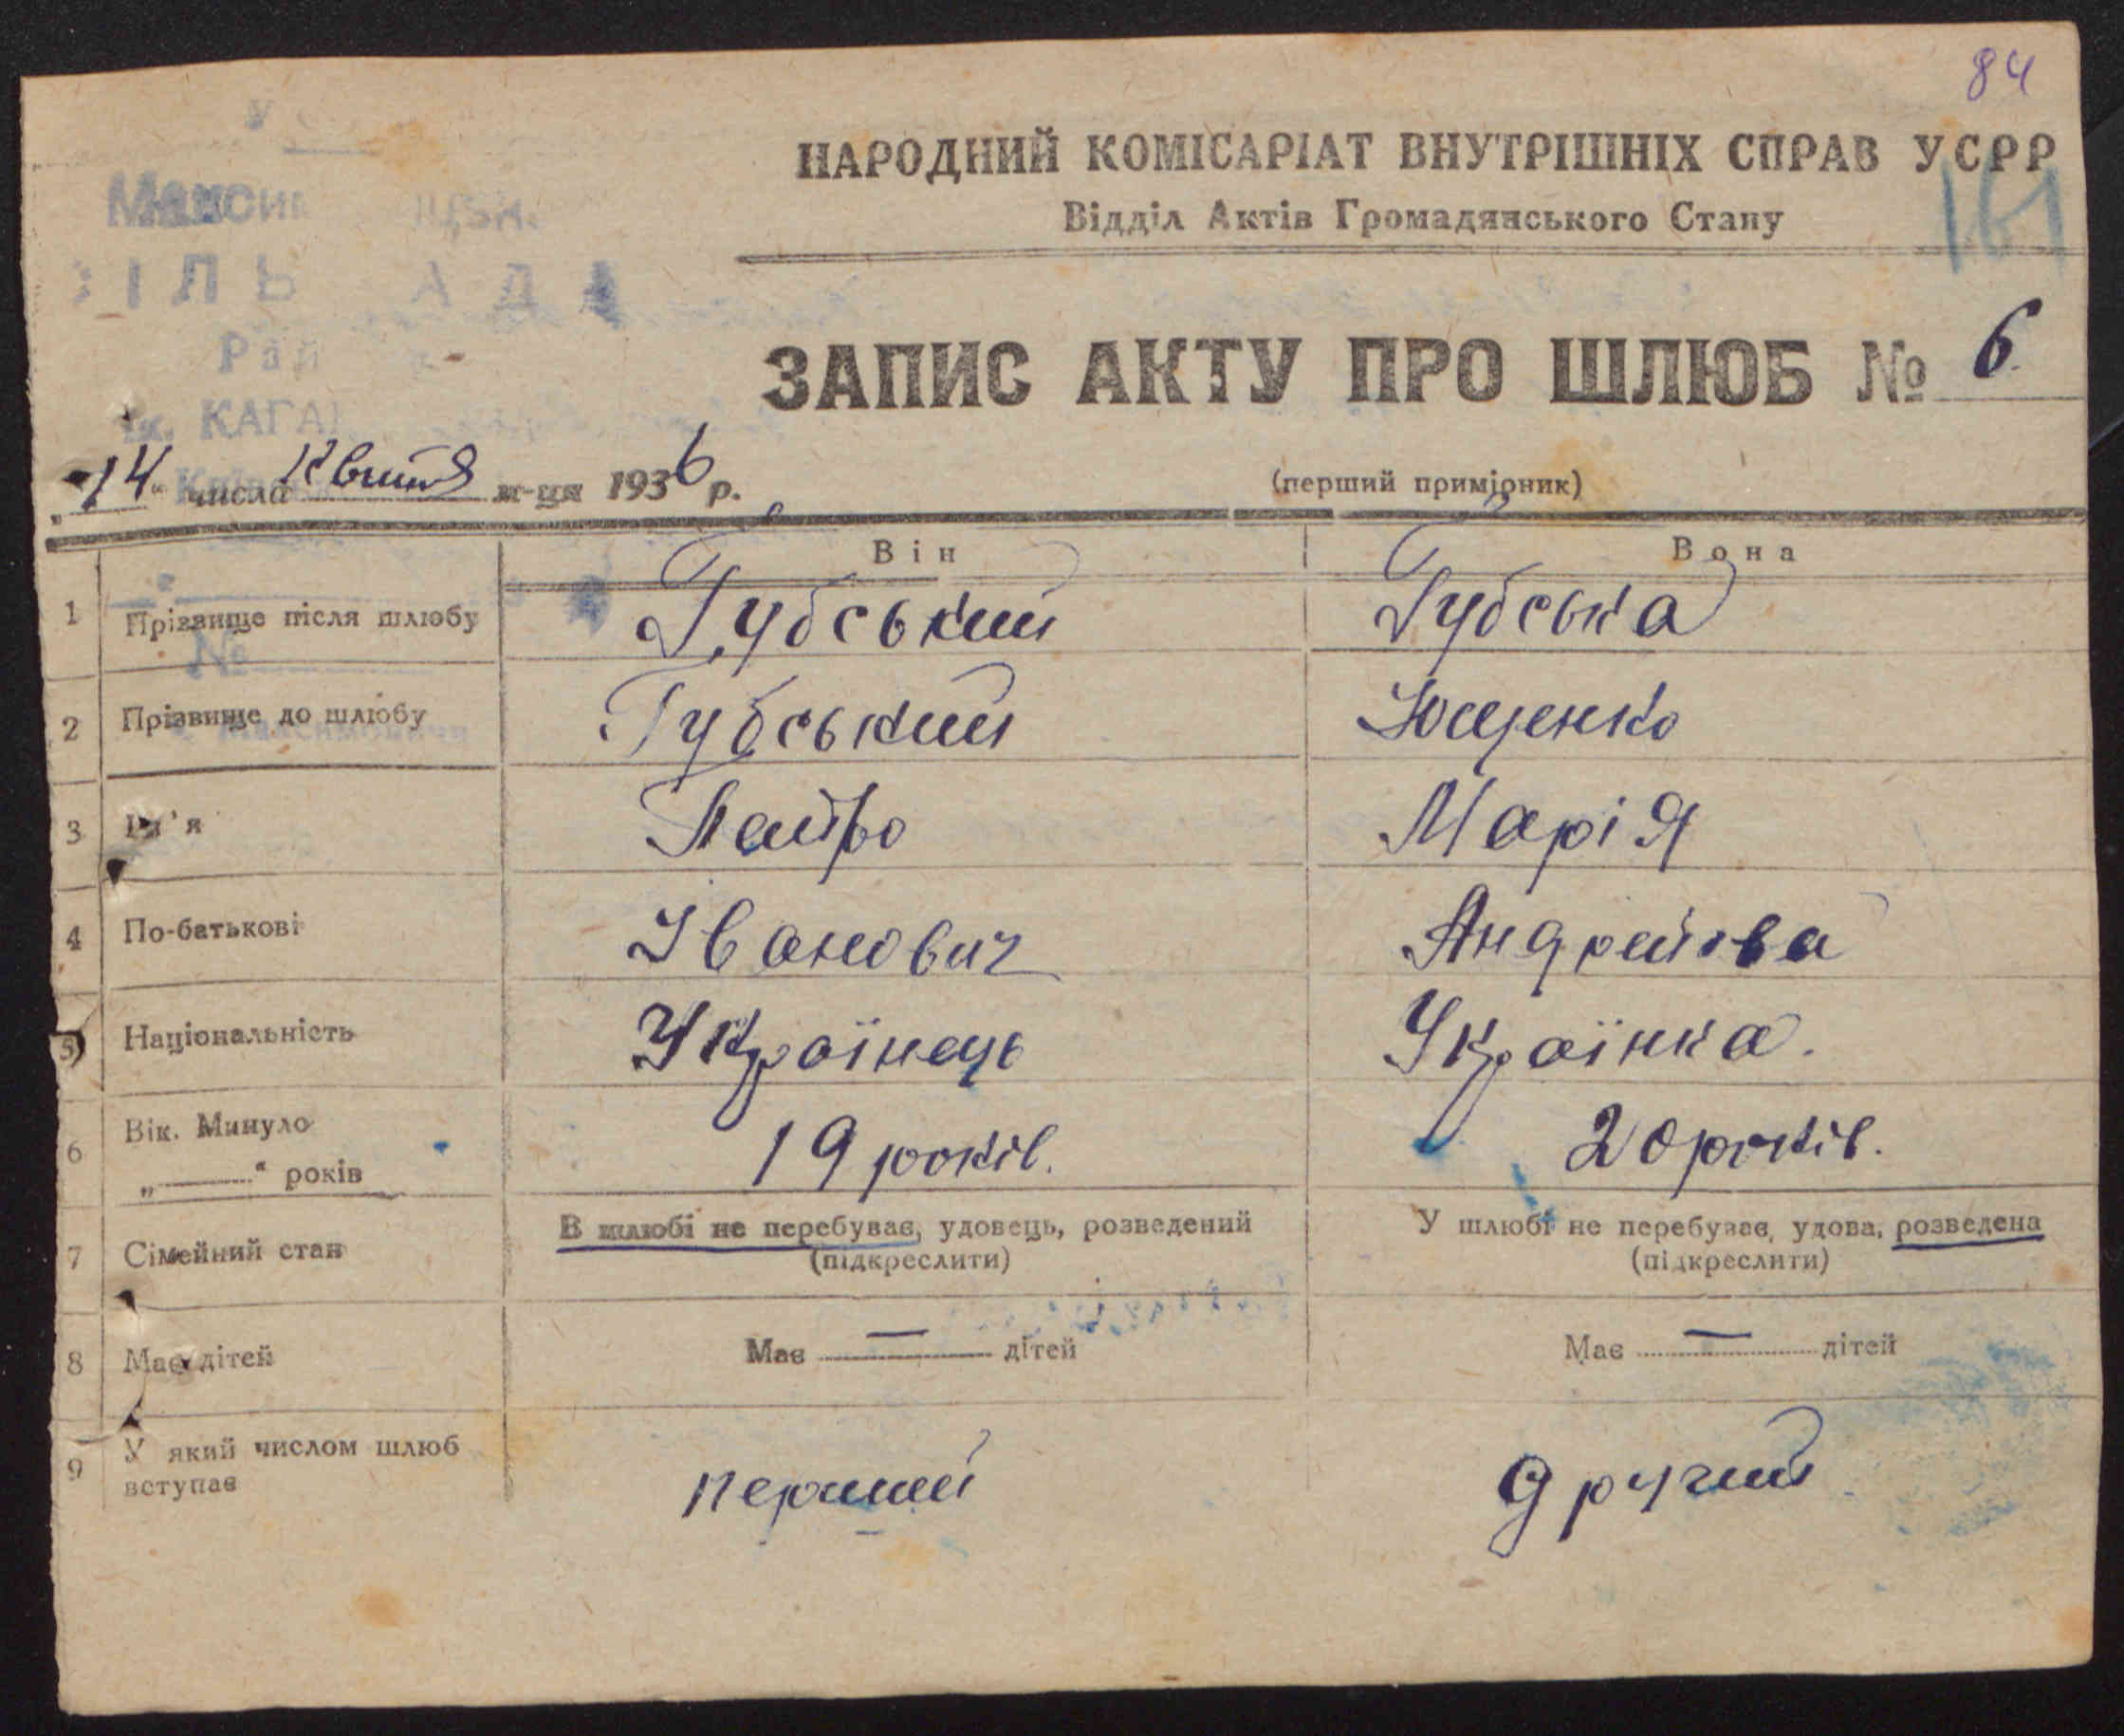 84
НАРОДНИЙ КОМІСАРІАТ ВНУТРІШНІХ СПРАВ УСРР
Відділ Актів Громадянського Стану
161
ЗАПИС АКТУ ПРО ШЛЮБ № 6
„14“ числа Квітня м-ця 1936 р.
(перший примірник)
Він Вона
1 Прізвище після шлюбу Губський Губська
2 Прізвище до шлюбу Губський Ющенко
3 Ім'я Павло Марія
4 По-батькові Іванович Андреївва
5 Національність Українець Українка.
6 Вік. Минуло „———“ років 19 років. 20 років.
7 Сімейний стан В шлюбі не перебуває, удовець, розведений У шлюбі не перебуває, удова, розведена
(підкреслити) (підкреслити)
8 Має дітей Має — дітей Має — дітей
9 У який числом шлюб вступає перший другий